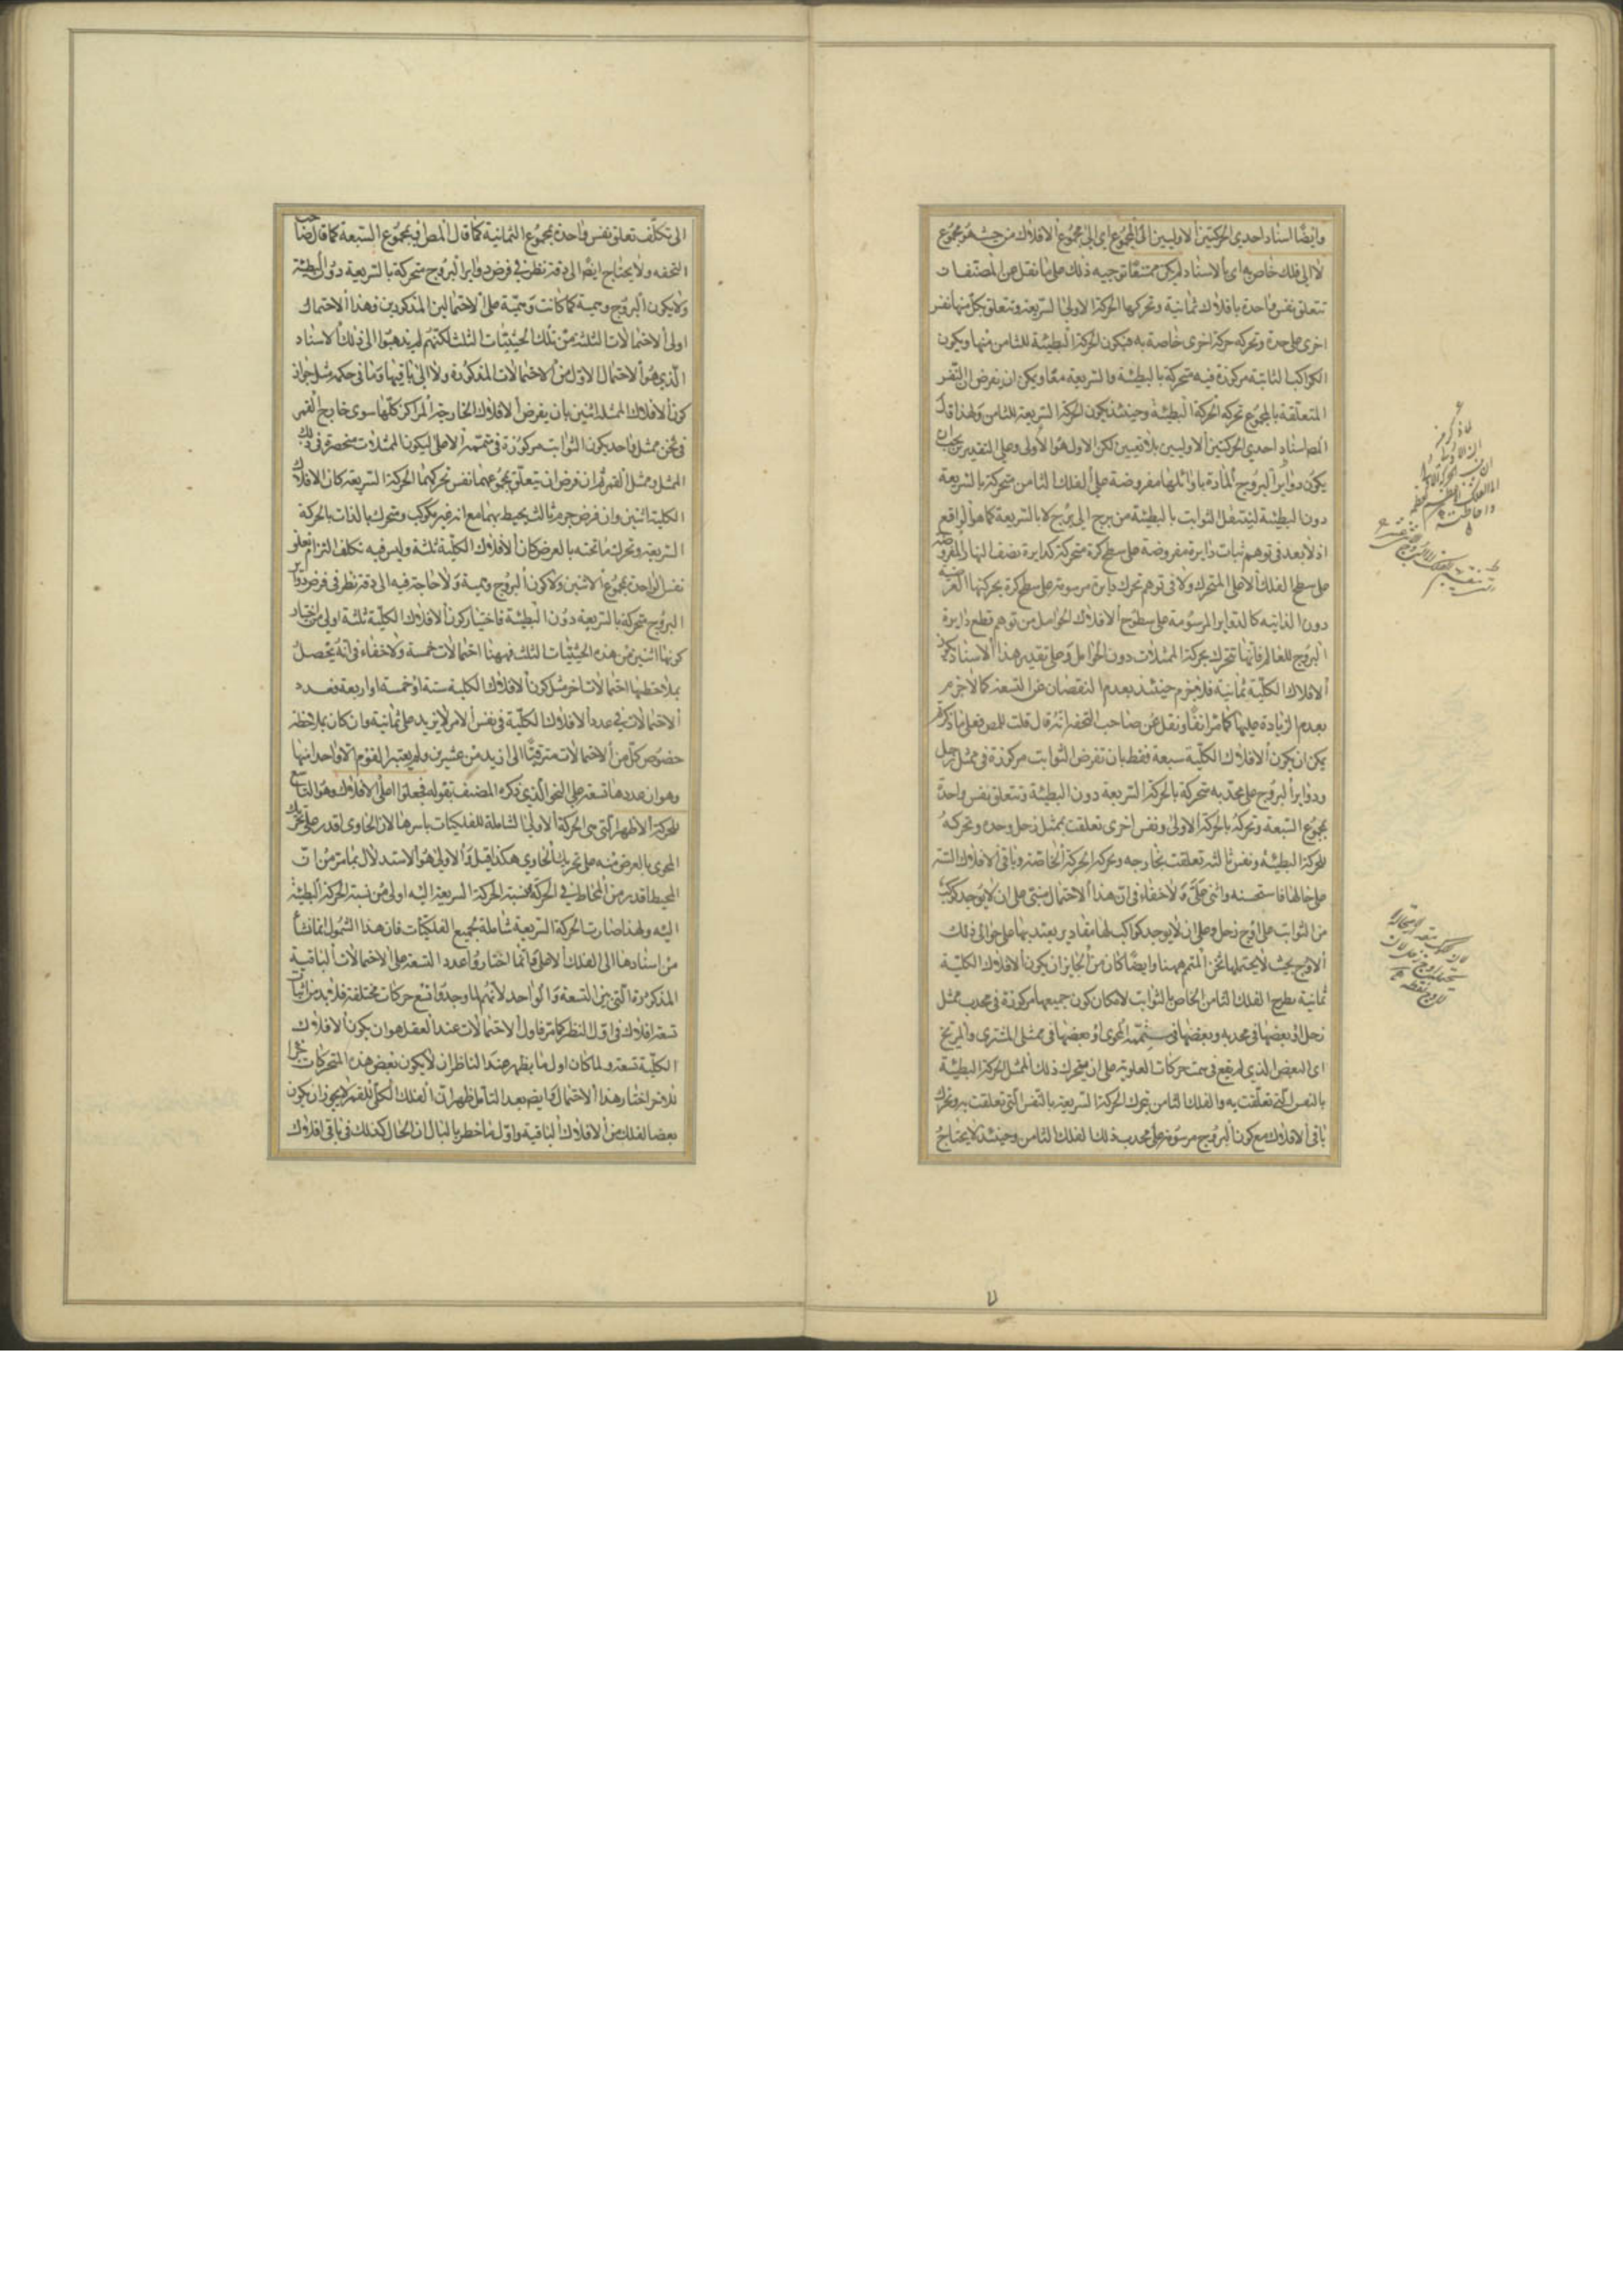 وايضا اسناد احدى الحركتين الاوليين الى المجموع اى الى مجموع الافلاك من حيث هو مجموع
لا الى فلك خاص به اى بالاسناد لم يكن ممتنعا توجيه ذلك على ما نقل عن المصنف ان
تتعلق نفس واحدة بافلاك ثمانية وتحركها الحركة الاولى السريعة وتتعلق بكل منها نفس
اخرى على حدة وتحركه حركة اخرى خاصة به فيكون الحركة البطيئة للثامن منها ويكون
الكواكب الثابتة مركوزة فيه متحركة بالبطيئة والسريعة معا ويمكن ان نفرض ان النفس
المتعلقة بالمجموع تحركه الحركة البطيئة وحينئذ يكون الحركة السريعة للثامن ولهذا قال
المص اسناد احدى الحركتين الاوليين بلا تعيين لكن الاول هو الاولى وعلى التقديرين يجب ان
يكون دوائر البروج المارة باوائلها مفروضة على الفلك الثامن متحركة بالسريعة
دون البطيئة لينتقل الثوابت بالبطيئة من برج الى برج لا بالسريعة كما هو الواقع
اذ لا بعد فى توهم ثبات دائرة مفروضة على سطح كرة متحركة كدايرة نصف النهار المفروضة
على سطح الفلك الاعلى المتحرك ولا فى توهم تحرك دايرة مرسومة على سطح كرة بحركتها العرضية
دون الذاتية كالدواير المرسومة على سطوح الافلاك الحوامل من توهم قطع دايرة
البروج للعالم فانها تتحرك بحركة الممثلات دون الحوامل وعلى تقدير هذا الاسناد يكون
الافلاك الكلية ثمانية فلا جزم حينئذ بعدم النقصان عن التسعة كما لا جزم
بعدم الزيادة عليها كما مر انفا ونقل عن صاحب التحفة انه قال قلت للمص فعلى ما ذكرتم
يمكن ان يكون الافلاك الكلية سبعة فقط بان تفرض الثوابت مركوزة فى ممثل زحل
ودوائر البروج على محدبه متحركة بالحركة السريعة دون البطيئة وتتعلق نفس واحدة
بمجموع السبعة وتحركه بالحركة الاولى ونفس اخرى تعلقت بممثل زحل وحده وتحركه
الحركة البطيئة ونفس ثالثة تعلقت بخارجه وتحركه الحركة الخاصة وباقى الافلاك الستة
على حالها فاستحسنه واثنى على ولا خفاء فى ان هذا الاحتمال مبنى على ان لا يوجد كوكب
من الثوابت على اوج زحل وعلى ان لا يوجد كواكب لها مقادير يعتد بها على حوالى ذلك
الاوج بحيث لا يحتملها ثخن المتمم ههنا وايضا كان من الجايز ان يكون الافلاك الكلية
ثمانية بطرح الفلك الثامن الخاص بالثوابت لامكان كون جميعها مركوزة فى محدب ممثل
زحل او بعضها فى محدبه وبعضها فى متممه المحوى او بعضها فى ممثلى المشترى والمريخ
اى البعض الذى لم يقع فى سمت حركات العلوية على ان يتحرك ذلك الممثل الحركة البطيئة
بالنفس التى تعلقت به والفلك الثامن يتحرك الحركة السريعة بالنفس التى تعلقت به وتحرك
باقى الافلاك مع كون البروج مرسومة على محدب ذلك الفلك الثامن وحينئذ لا يحتاج
الى تكلف تعلق نفس واحدة بمجموع الثمانية كما قال المص او بمجموع السبعة كما قال صاحب
التحفه ولا يحتاج ايضا الى دقة نظر فى فرض دواير البروج متحركة بالسريعة دون البطيئة
ولا يكون البروج وهمية كما كانت وهمية على الاحتمالين المذكورين وهذا الاحتمال
اولى الاحتمالات الثلثة من تلك الحيثيات الثلث لكنهم لم يذهبوا الى ذلك الاسناد
الذى هو الاحتمال الاول من الاحتمالات المذكورة ولا الى باقيها وما فى حكمه مثل جواز
كون الافلاك الممثلة اثنين بان يفرض الافلاك الخارجة المراكز كلها سوى خارج القمر
فى ثخن ممثل واحد يكون الثوابت مركوزة فى متممه الاعلى ليكون الممثلات منحصرة فى ذلك
الممثل وممثل القمر ثم ان فرض ان يتعلق بمجموعهما نفس تحركهما الحركة السريعة كان الافلاك
الكلية اثنين وان فرض جرم ثالث يحيط بهما مع انه غير مكوكب ومتحرك بالذات بالحركة
السريعة وتحرك ما تحته بالعرض كان الافلاك الكلية ثلثة وليس فيه تكلف التزام تعلق
نفس واحدة بمجموع الاثنين ولا كون البروج وهمية ولا حاجة فيه الى دقة نظر فى فرض دواير
البروج متحركة بالسريعة دون البطيئة فاختيار كون الافلاك الكلية ثلثة اولى من اختيار
كونها اثنين من هذه الحيثيات الثلث فههنا احتمالات خمسة ولا خفاء فى انه يحصل
بملاحظتها احتمالات اخر مثل كون الافلاك الكلية ستة او خمسة او اربعة فعدد
الاحتمالات فى عدد الافلاك الكلية فى نفس الامر لا يزيد على ثمانية وان كان بملاحظة
خصوص كل من الاحتمالات مترقيا الى ازيد من عشرين ولم يعتبر القوم الا واحدا منها
وهو ان عددها تسعة على النحو الذى ذكره المصنف بقوله فجعلوا اعلى الافلاك وهو التاسع
للحركة الاظهر التى هى الحركة الاولى الشاملة للفلكيات باسرها لان الحاوى اقدر على تحريك
المحوى بالعرض منه على تحريك الحاوى هكذا قيل والاولى هو الاستدلال بما مر من ان
المحيط اقدر من المحاط فى الحركة فنسبة الحركة السريعة اليه اولى من نسبة الحركة البطيئة
اليه ولهذا صارت الحركة السريعة شاملة لجميع الفلكيات فان هذا الشمول انما نشأ
من اسنادها الى الفلك الاعلى وانما اختاروا عدد التسعة على الاحتمالات الباقية
المذكورة التى بين التسعة والواحد لانهم لما وجدوا تسع حركات مختلفة فلا بد من اثبات
تسعة افلاك فى اول النظر كما مر فاول الاحتمالات عند العقل هو ان يكون الافلاك
الكلية تسعة ولما كان اول ما يظهر عند الناظر ان لا يكون بعض هذه المتحركات جزا
لآخر اختار هذا الاحتمال ثم ايضا بعد التامل ظهر ان الفلك الكلى للقمر لا يجوز ان يكون
بعضا لفلك من الافلاك الباقية واول ما خطر بالبال ان الحال كذلك فى باقى افلاك